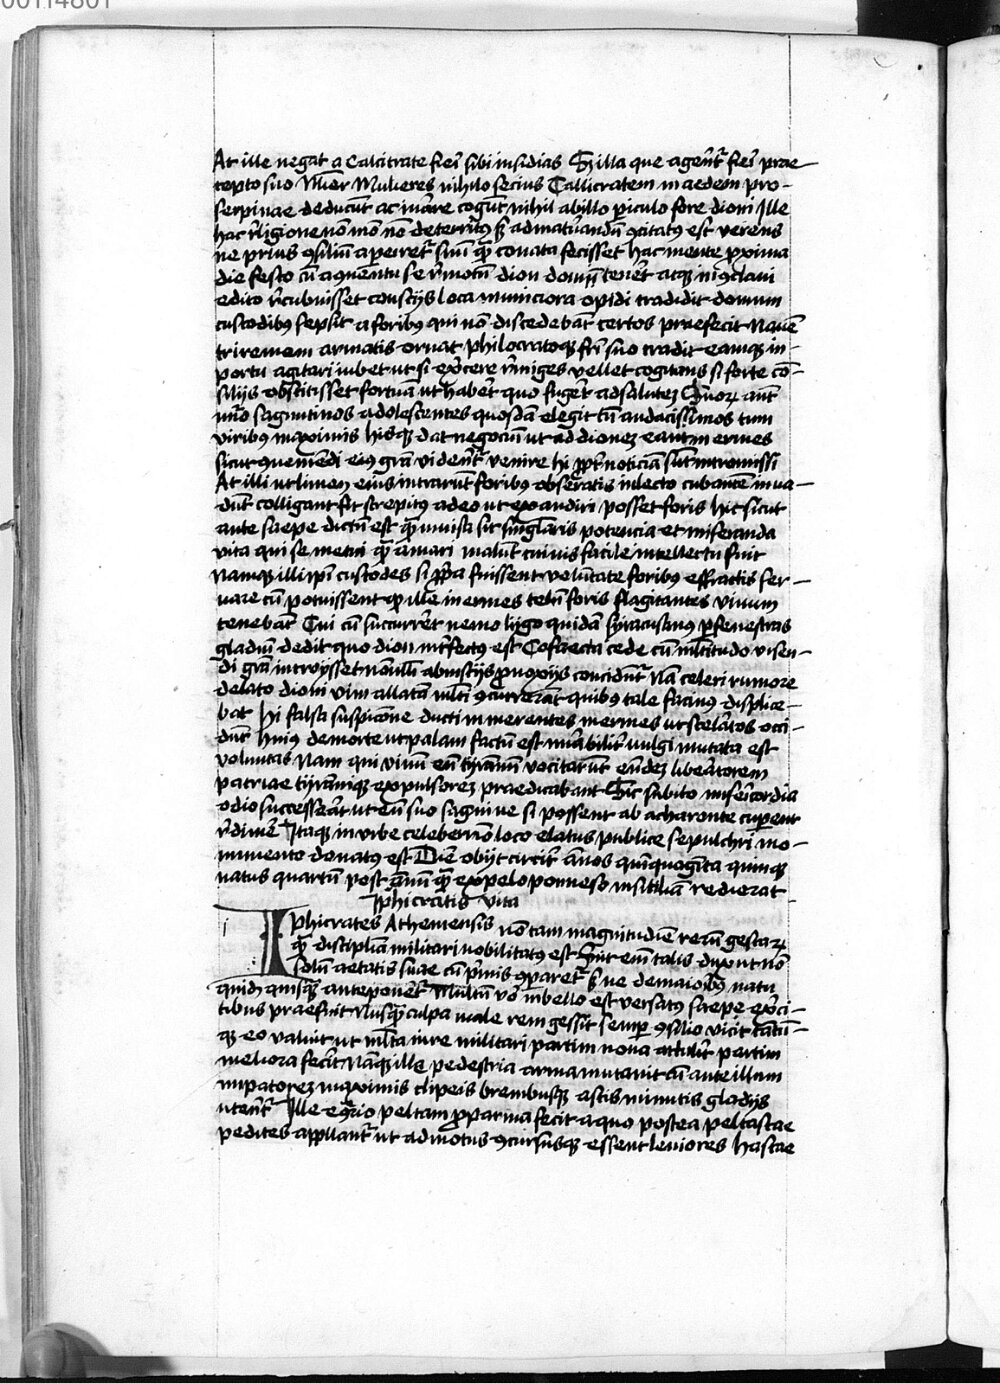 00114801
At ille negat a Calcitrate fieri sibi insidias Sz illa que agerent̄ fieri prae–
cepto suo Mlier Mulieres nihilo secius Callicratem in aedem pro–
serpinae deducūt ac iurare cogūt nihil ab illo piculo fore dioni Ille
hac religione nō mō nō deterritꝰ sz ad maturandū ꝯcitatus est verens
ne prius ꝯsiliū aperiret̄ suū quā conata fecisset hac mente proxima
die festo cū a ꝯuentu se remotū dion domū teneret atqꝫ in ꝯclaui
edito recubuisset consciis loca municiora opidi tradidit domum
custodibꝰ sepsit a foribꝰ qui nō discedebāt certos praefecit Nauē
triremem armatis ornat philocratoqꝫ fri suo tradit eamqꝫ in–
portu agitari iubet ut si exercere remiges vellet cogitans si forte cō–
silijs obstitisset fortuā ut haberet quo fugeret ad salutē Suoꝝ aut̄
nuō saguntinos adolescentes quosdā elegit cū audacissimos tum
viribꝰ maximis hisqꝫ dat negociū ut ad dionē eant inermes
sicut ꝯueniendi eiꝰ grā viderent̄ venire hi ꝓpter noticiā sūt intromissi
At illi ut limen eius intrarūt foribꝰ obseratis in lecto cubantē inua–
dūt colligant fit strepitꝰ adeo ut exaudiri posset foris hic sicut
ante saepe dictū est quā inuisa sit singlaris potencia et miseranda
vita qui se metui quā amari malūt cuiuis facile intellectu fuit
Namqꝫ illi ipi custodes si ꝓpa fuissent volūtate foribꝰ effractis ser–
uare eū potuissent qꝫ illi inermes telū foris flagitantes viuum
tenebāt Cui cū succurreret nemo lygo quidā syracusanꝰ ꝑ fenestras
gladiū dedit quo dion int̄fectus est Cōfecta cede cū mltitudo visen–
di grā introysset nōnulli ab insciis ꝓ noxiis concidūt̄ Nā celeri rumore
delato dioni vim allatam mlti ꝯcurrerāt quibus tale facinꝰ displice–
bat hi falsa suspicōne ducti inmerentes inermes ut sceleratos occi–
dūt huius de morte ut palam factū est mirabiliter uulgi mutata est
voluntas Nam qui viuū eū tyrannū vocitarūt eūdē liberatorem
patriae tyrannīqꝫ expulsorē praedicabant Sic subito misericordia
odio successerāt ut eū suo sagwine si possent ab acharonte cuperent
redimere Itaqꝫ in vrbe celeberrimo loco elatus publice sepulchri mo–
numento donatꝰ est Diē obijt circiter ānos quinquaginta quinqꝫ
natus quartū post ānū quā ex peloponneso in siciliā redierat
Iphicratis vita
i Iphicrates Atheniensis nō tam magnitudine rerū gestaꝝ
quā disciplina militari nobilitatꝰ est Fuit em̄ talis dux ut nō
solū aetatis suae cū primis ꝯpararet̄ sz ne de maioribꝰ natu
quidē quisquā anteponeret̄ Multū vo in bello est versatꝰ saepe exerci–
tibus praefuit Nusquā culpa male rem gessit semper ꝯsilio vicit tantū–
qꝫ eo valuit ut mlta in re militari partim noua attulit partim
meliora fecit Nāqꝫ ille pedestria arma mutauit cū ante illum
impatorē maximis clipeis breuibusqꝫ astis minutis gladiis
uterent̄ Ille e ꝯtrario peltam ꝓ parma fecit a quo postea peltastae
pedites appllant̄ ut ad motus ꝯcursusqꝫ essent leuiores hastae